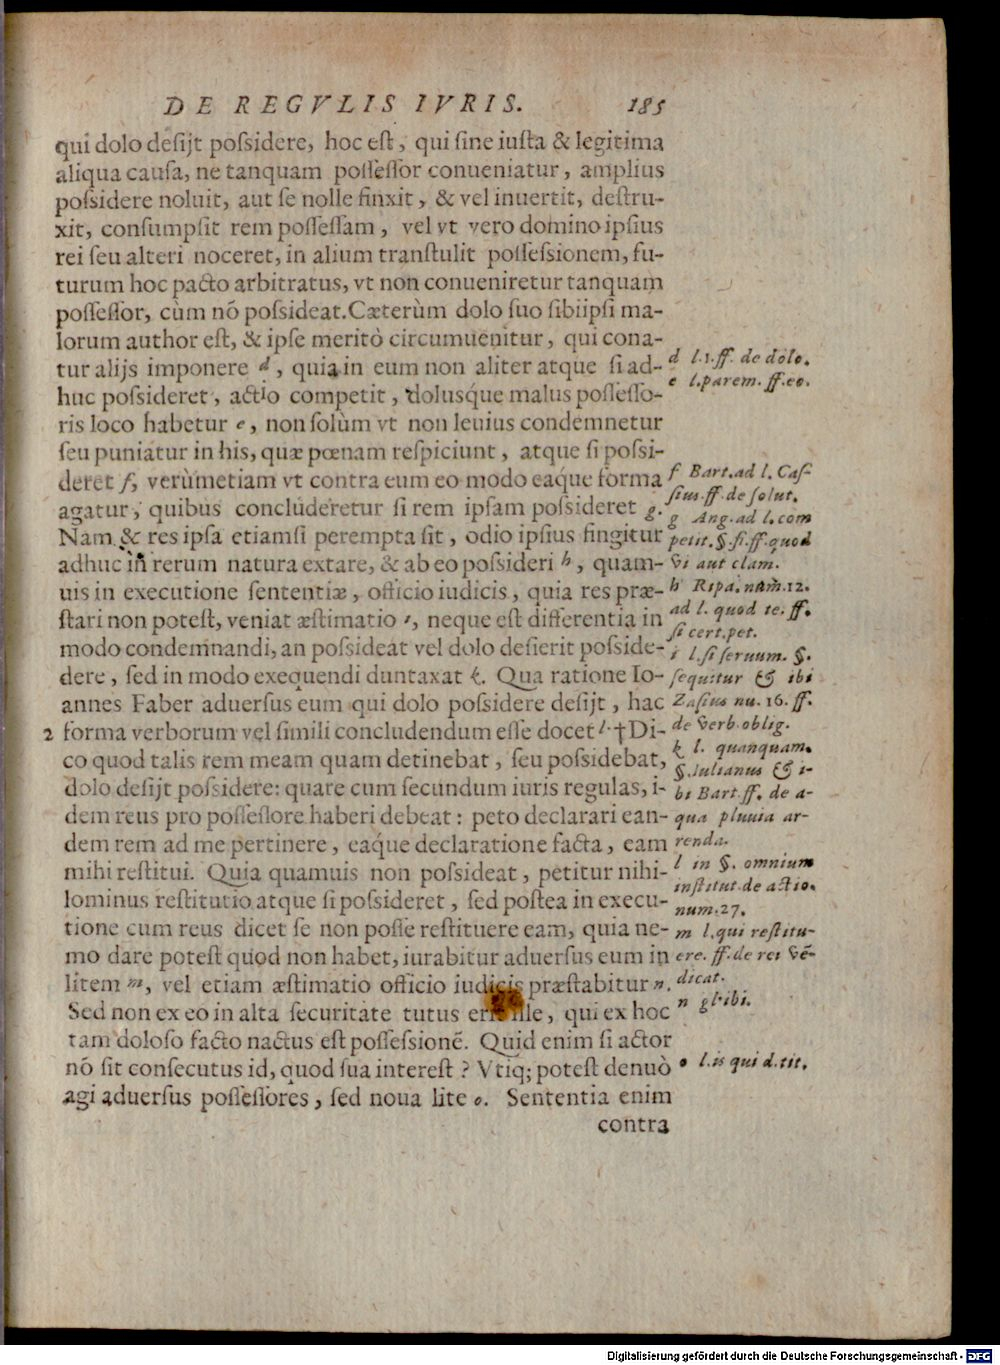 DE REGVLIS IVRIS. 185
qui dolo desijt possidere, hoc est, qui sine iusta & legitima
aliqua causa, ne tanquam possessor conueniatur, amplius
possidere noluit, aut se nolle finxit, & vel inuertit, destru-
xit, consumpsit rem possessam, vel vt vero domino ipsius
rei seu alteri noceret, in alium transtulit possessionem, fu-
turum hoc pacto arbitratus, vt non conueniretur tanquam
possessor, cùm nō possideat. Cæterùm dolo suo sibiipsi ma-
lorum author est, & ipse meritò circumuenitur, qui cona-
tur alijs imponere d, quia in eum non aliter atque si ad-
huc possideret, actio competit, dolusq́ue malus possesso-
ris loco habetur e, non solùm vt non leuius condemnetur
seu puniatur in his, quæ pœnam respiciunt, atque si possi-
deret f, verùmetiam vt contra eum eo modo eaq́ue forma
agatur, quibus concluderetur si rem ipsam possideret g.
Nam & res ipsa etiamsi perempta sit, odio ipsius fingitur
adhuc in rerum natura extare, & ab eo possideri h, quam-
uis in executione sententiæ, officio iudicis, quia res præ-
stari non potest, veniat æstimatio i, neque est differentia in
modo condemnandi, an possideat vel dolo desierit posside-
dere, sed in modo exequendi duntaxat k. Qua ratione Io-
annes Faber aduersus eum qui dolo possidere desijt, hac
2 forma verborum vel simili concludendum esse docet l. †Di-
co quod talis rem meam quam detinebat, seu possidebat,
dolo desijt possidere: quare cum secundum iuris regulas, i-
dem reus pro possessore haberi debeat: peto declarari ean-
dem rem ad me pertinere, eaq́ue declaratione facta, eam
mihi restitui. Quia quamuis non possideat, petitur nihi-
lominus restitutio atque si possideret, sed postea in execu-
tione cum reus dicet se non posse restituere eam, quia ne-
mo dare potest quod non habet, iurabitur aduersus eum in
litem m, vel etiam æstimatio officio iudicis præstabitur n.
Sed non ex eo in alta securitate tutus erit ille, qui ex hoc
tam doloso facto nactus est possessionē. Quid enim si actor
nō sit consecutus id, quod sua interest? Vtiq; potest denuò
agi aduersus possessores, sed noua lite o. Sententia enim
contra
d l.1.ff. de dolo.
e l.parem. ff.eo.
f Bart. ad l. Cas-
sius.ff.de solut.
g Ang. ad l. com
petit. §. si.ff.quod
vi aut clam.
h Ripa. num̄.12.
ad l. quod te. ff.
si cert.pet.
i l.si seruum. §.
sequitur & ibi
Zasius nu. 16. ff.
de verb.oblig.
k l. quanquam.
§.Iulianus & i-
bi Bart.ff. de a-
qua pluuia ar-
renda.
l in §. omnium
institut.de actio.
num.27.
m l.qui restitu-
ere. ff.de rei vē-
dicat.
n gl.ibi.
o l.is qui d.tit.
Digitalisierung gefördert durch die Deutsche Forschungsgemeinschaft - DFG